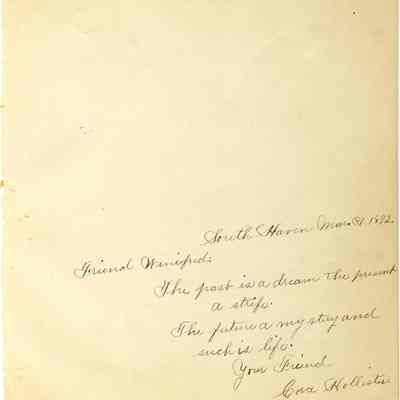 South Haven Mar. 31 1892.
Friend Winifred:
The past is a dream the present
a strife.
The future a mystery and
such is life.
Your Friend
Cora Hollister